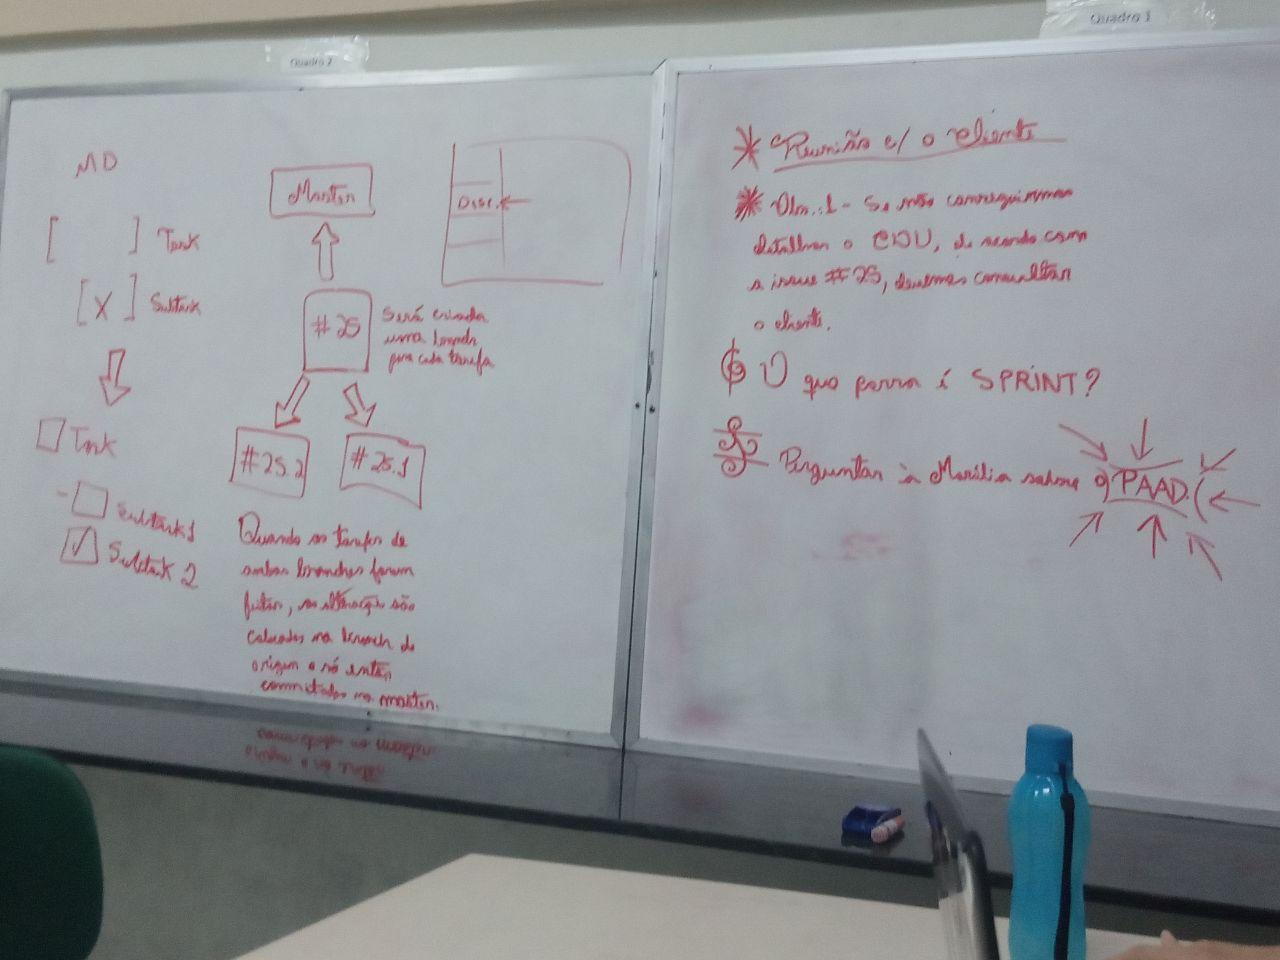 Quadro 2
MD
[ ] Task
[X] Subtask
Task
Subtask 1
Subtask 2
Master
#25
Será criada
uma branch
para cada tarefa
#25.2
#25.1
Quando as tarefas de
ambas branches forem
feitas, as alterações são
colocadas na branch de
origem e só então
commitadas na master.
Disc.
Quadro 1
Reunião c/ o cliente
Obs.:1 - Se não conseguirmos
detalhar o CDU, de acordo com
a issue #25, devemos consultar
o cliente.
O que porra é SPRINT?
Perguntar à Marília sobre o PAAD.